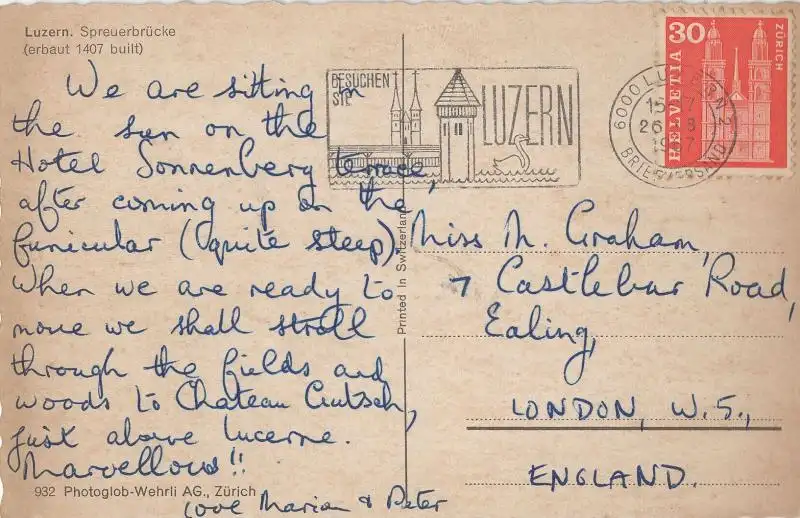 Luzern. Spreuerbrücke
(erbaut 1407 built)
We are sitting in
the sun on the
Hotel Sonnenberg terrace,
after coming up on the
funicular (quite steep).
When we are ready to
move we shall stroll
through the fields and
woods to Chateau Gutsch,
just above Lucerne.
Marvellous!!
Love Marian & Peter
932 Photoglob-Wehrli AG., Zürich
Printed in Switzerland
BESUCHEN
SIE
LUZERN
6000 LUZERN 2
15-
26. 8
BRIEFVERSAND
30
HELVETIA
ZÜRICH
Miss M. Graham,
7 Castlebar Road,
Ealing,
LONDON, W.5.,
ENGLAND.